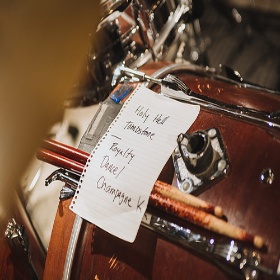 Holy Hell
Tombstone
—
Royalty
Dance /
Champagne K